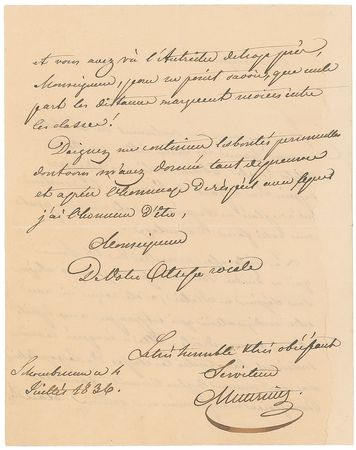 et vous avez vû l'Autriche de trop près,
Monseigneur, pour ne point savoir, que nulle
part les distances marquent moins entre
les classes!
Daignez me continuer les bontés personnelles
dont vous m'avez donné tant de preuves
et agréer l'hommage du respect avec lequel
j'ai l'honneur d'être,
Monseigneur
De Votre Altesse roiale
Le très humble & très obéissant
Serviteur
à 4
Juillet 1836.